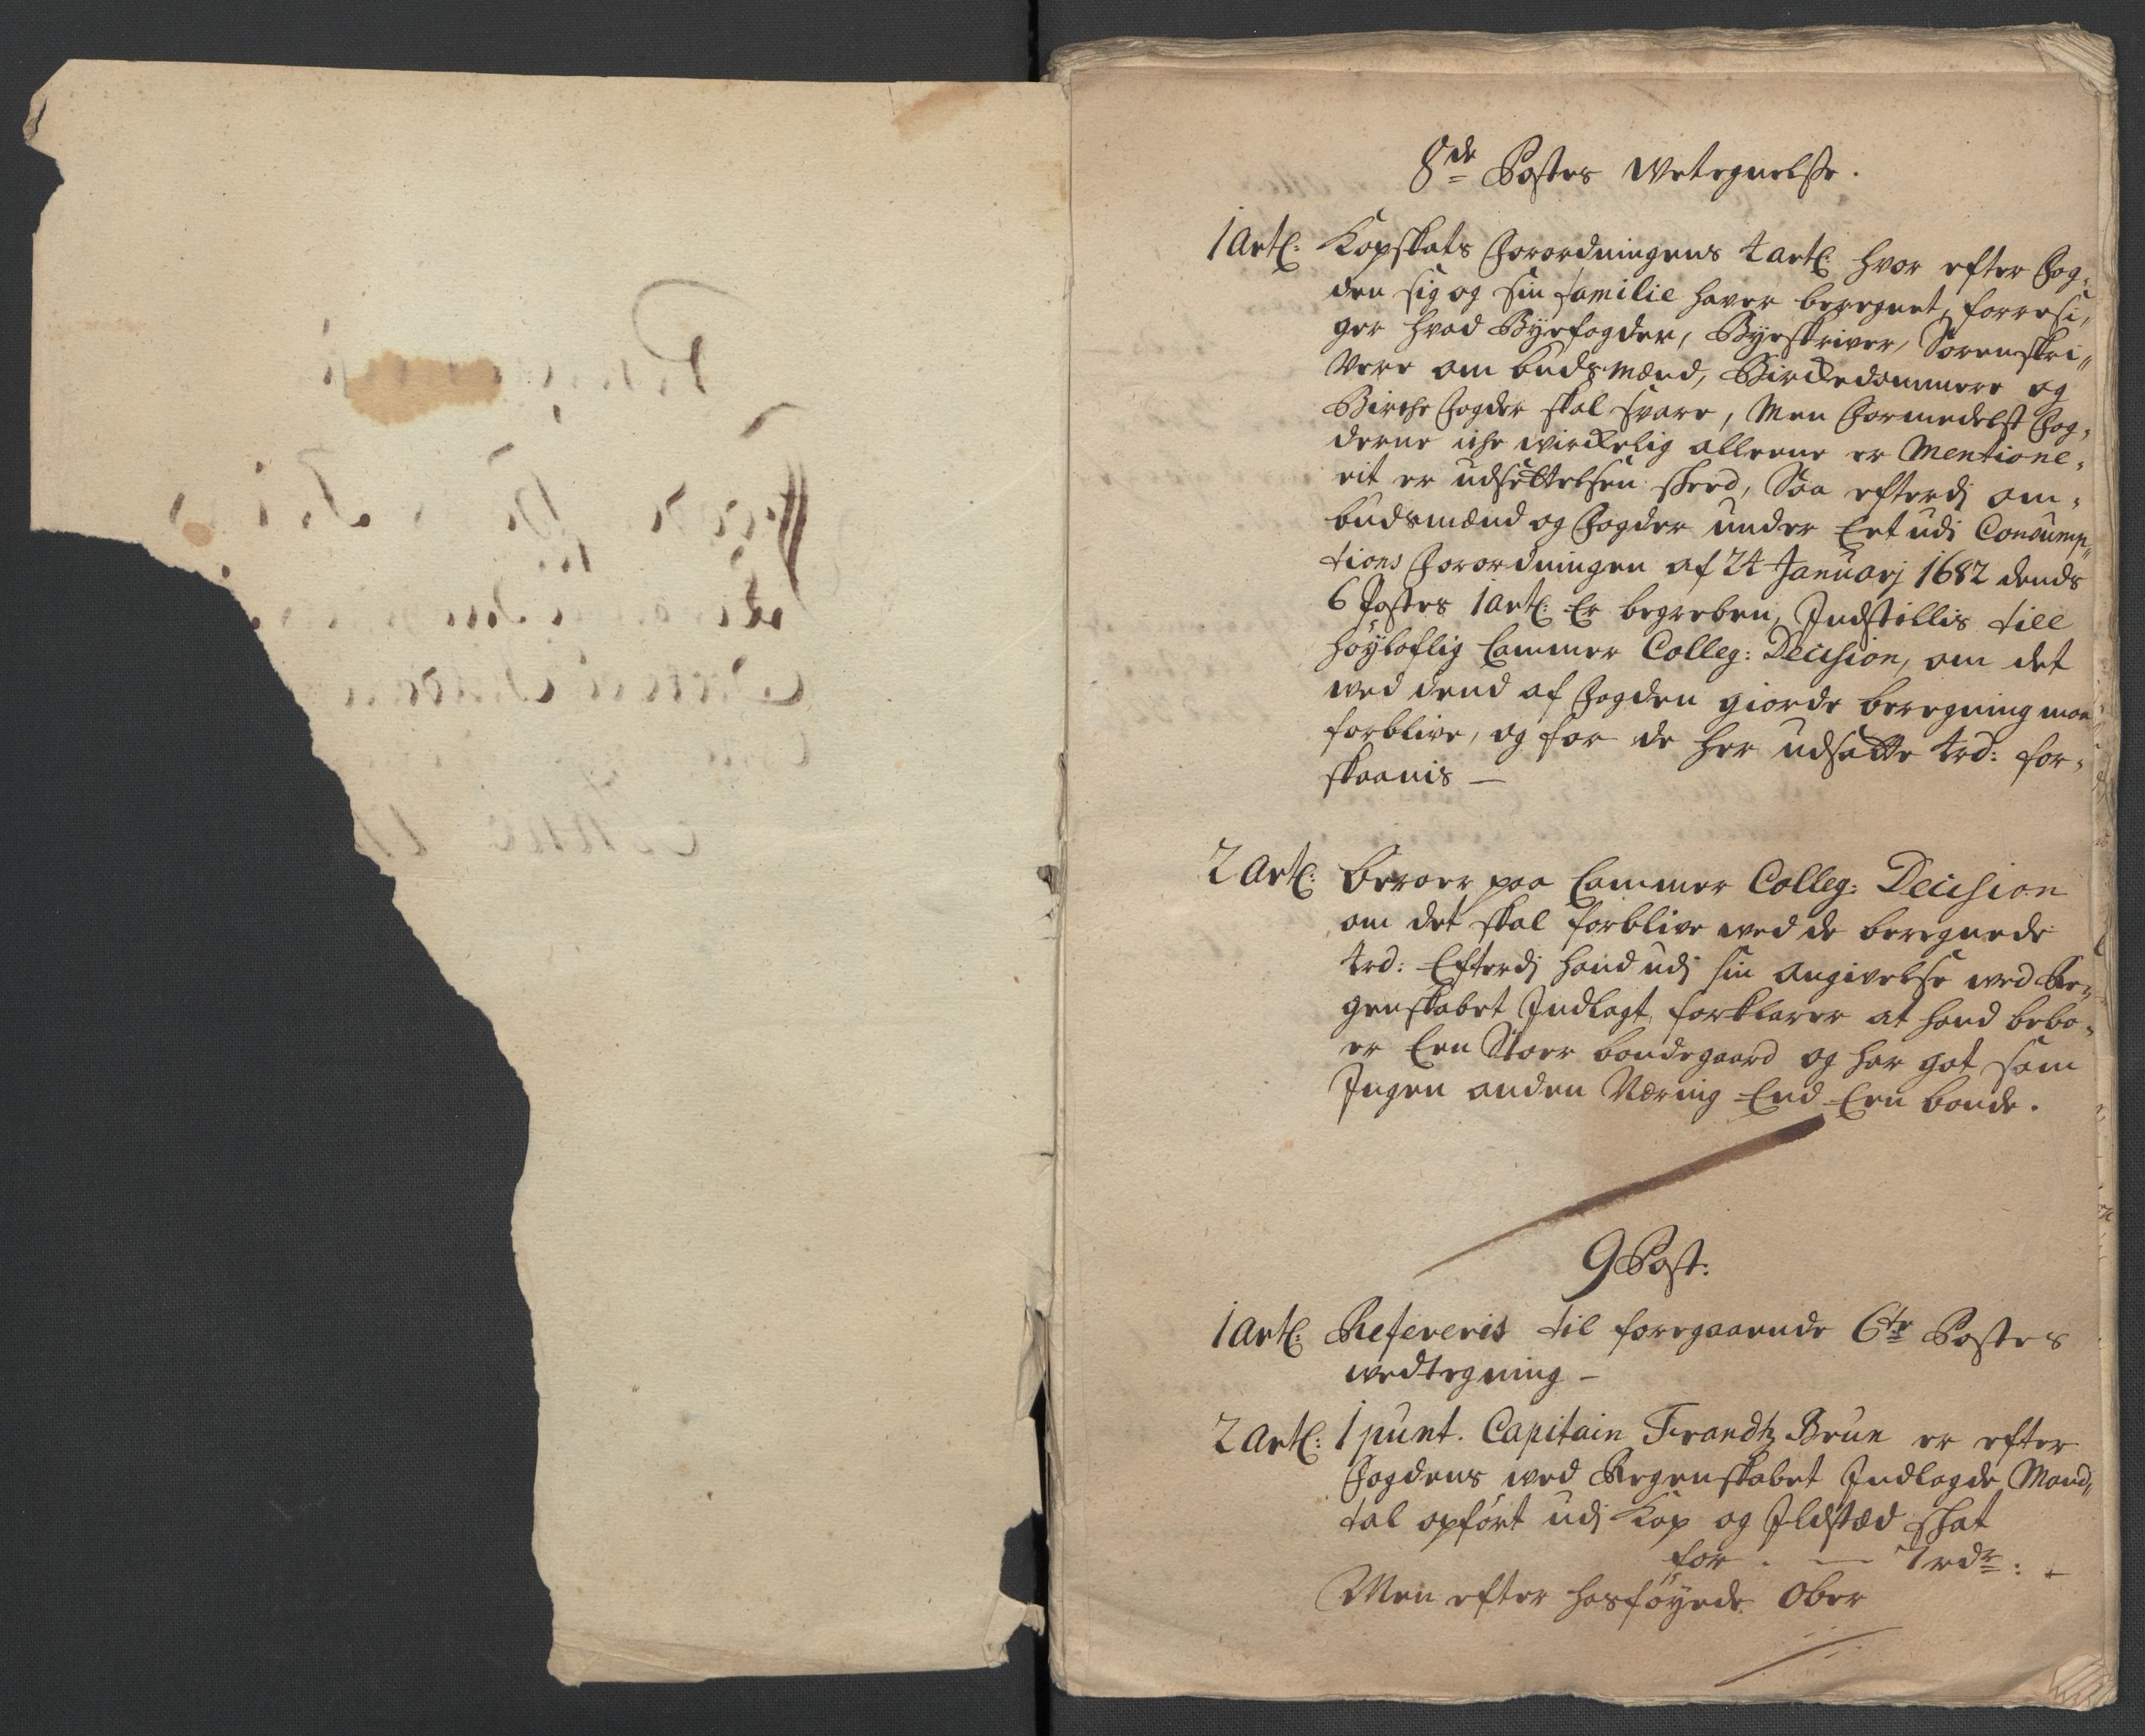 8de Postes Wetegnelsse.
1 Artl: Kopskats Forordningens 4 artl: hvor efter Fog-
den sig og sin familie haver beregnet, forresi,
ger hvad Byefogder, Byeskriver, Sorenskri"
Vere om budsmænd, Birckedommere og
Birche fogder skal svare, Men Formedelst Fog-
derne iche wirckelig alleene er Mentione-
rit er udsettelsen skeed, Saa efterdj om-
budsmænd og Fogder under Eet udi Consump-
tions Forordningen af 24 Januarj 1682 dends
6 Postes 1 artl: Er begreben, Indstillis till
høyloflig Cammer Colleg: Decision, om det
wed dend af Fogden giorde beregning maa
forblive, og for de her udsatte 4 rd: for-
skaanis —
2 Artl: Beroer paa Cammer Colleg: Decision
om det skal forblive wed de beregnede
4 rd: Efterdj hand udj sin Angivelse wed Re-
genskabet Indlagt, forklarer at hand bebo-
er Een Stoer bondegaard og har got som
Ingen anden Næring End Een bonde.
9 Post:
1 Artl: Refereris til foregaaende 6te Postes
wedtegning —
2 Artl: 1 punt. Capitain Frandtz Brun er efter
Fogdens wed Regenskabet Indlagde Mand"
tal opført udj Kop og Ildsted skat
for . — 7 rdr: —
Men efter hosføyede Ober